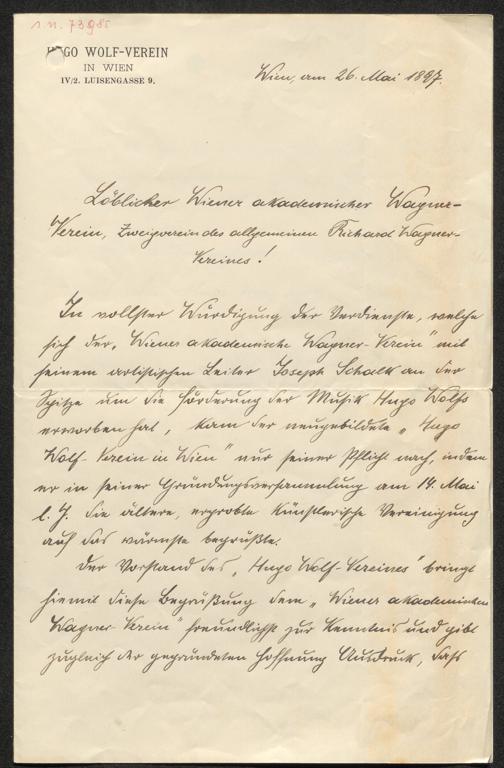 I.N. 73985
HUGO WOLF-VEREIN
IN WIEN
IV/2. LUISENGASSE 9.
Wien, am 26. Mai 1897.
Löblicher Wiener akademischer Wagner-
Verein, Zweigverein des allgemeinen Richard Wagner-
Vereines!
In vollster Würdigung der Verdienste, welche
sich der „Wiener akademische Wagner-Verein" mit
seinem artistischen Leiter Joseph Schalk an der
Spitze um die Förderung der Musik Hugo Wolfs
erworben hat, kam der neugebildete „Hugo
Wolf-Verein in Wien" nur seiner Pflicht nach, indem
er in seiner Gründungsversammlung am 14. Mai
l. J. die ältere, erprobte künstlerische Vereinigung
auf das wärmste begrüßte.
Der Vorstand des „Hugo Wolf-Vereines" bringt
hiemit diese Begrüßung dem „Wiener akademischen
Wagner-Verein" freundlichst zur Kenntnis und gibt
zugleich der gegründeten Hoffnung Ausdruck, dass